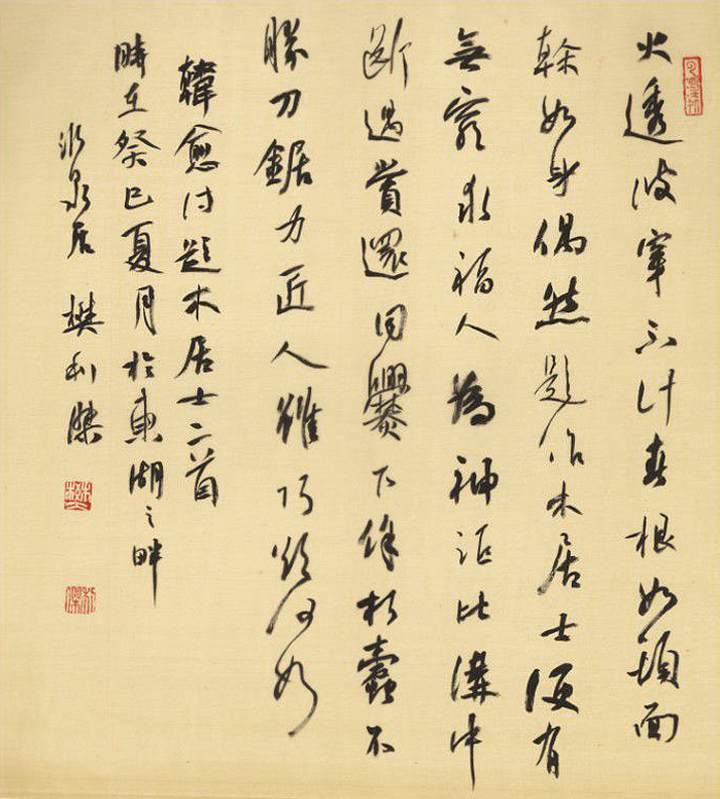 火透波穿不計春根如頭面
幹如身偶然題作木居士便有
無窮求福人為神詎比溝中
斷遇賞還同爨下餘朽蠹不
勝刀鋸力匠人雖巧欲何如
韓愈詩題木居士二首
時在癸巳夏月於東湖之畔
泉居 樊利傑